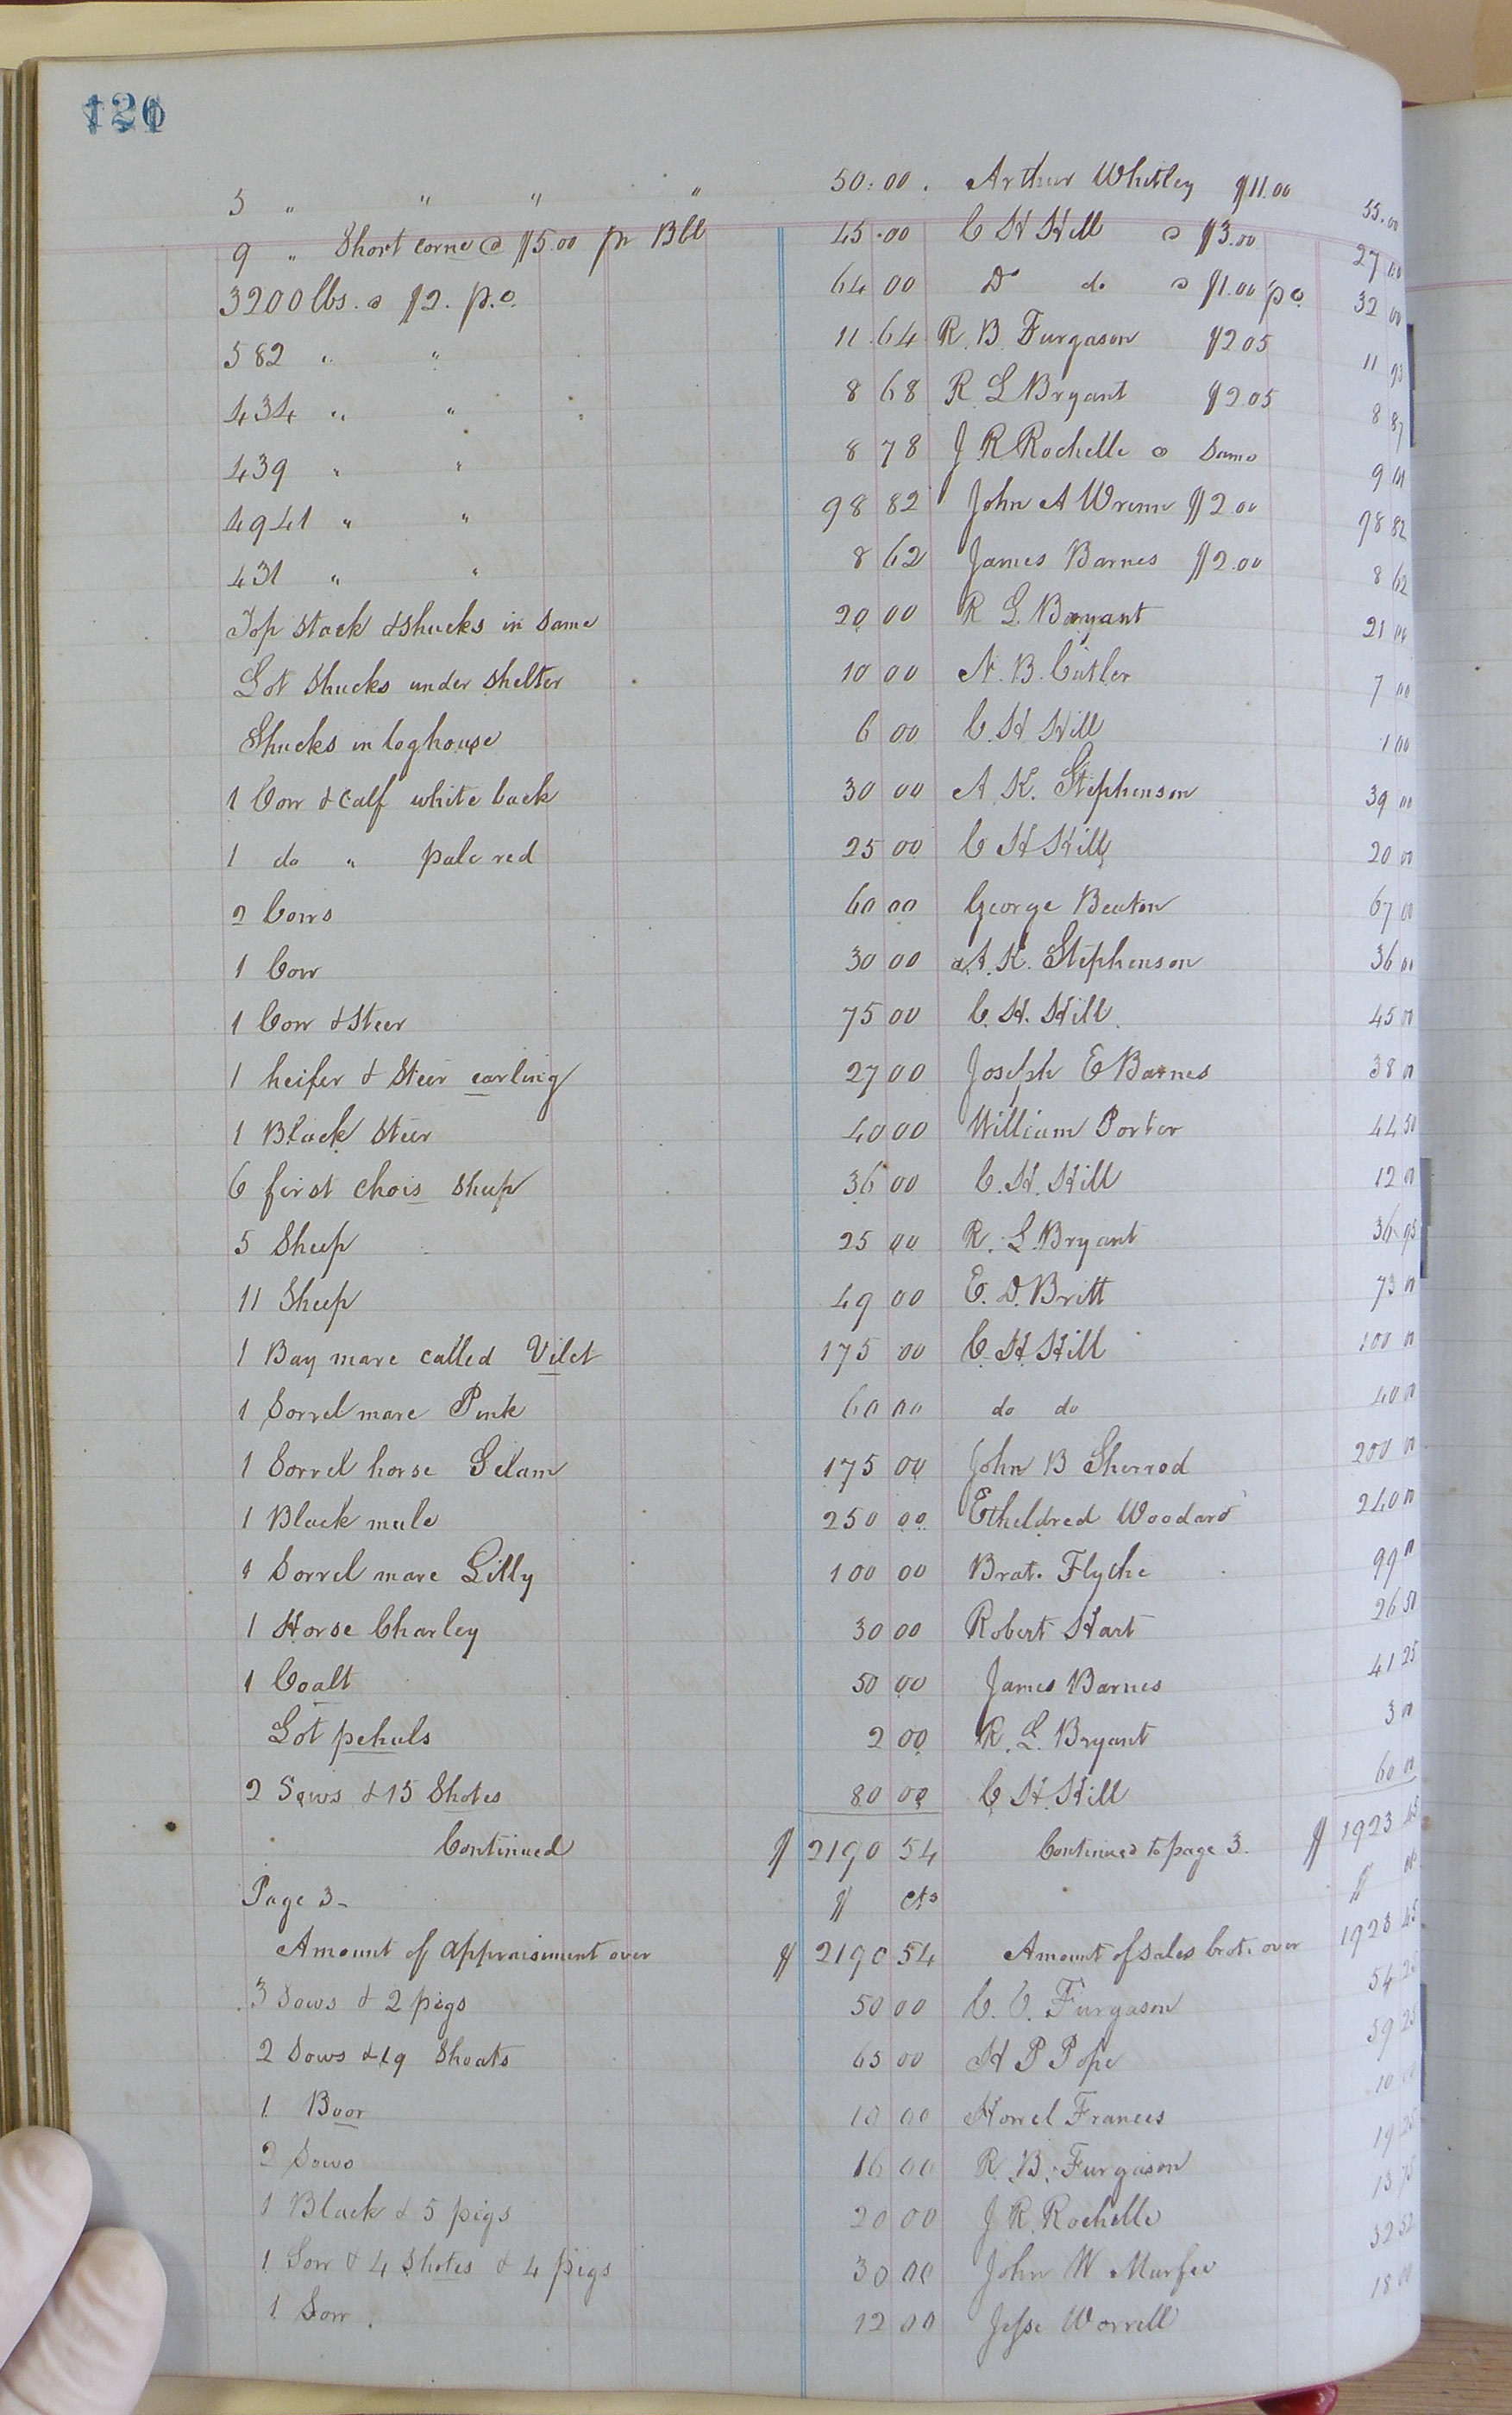 5 " " " " 50.00. Arthur Whitley $11.00 55.00
9 " Short corne @ $5.00 pr Bbl 45.00 C H Hill @ $3.00 27 00
3200 lbs. @ $2. p.c. 64 00 Do do @ $1.00 pc 32 00
582 " " 11.64 R. B. Furgason $2 05 11 93
434 " " 8 68 R L Bryant $2 05 8 87
439 " " 8 78 J R Rochelle @ Same 9 01
4941 " " 98 82 John A Wrenn $2.00 98 82
431 " " 8 62 James Barnes $2.00 8 62
Top stack & Shucks in Same 20 00 R L. Bryant 21 00
Lot Shucks under Shelter 10 00 N. B. Cutler 7 00
Shucks in loghouse 6 00 C. H Hill 1 00
1 Cow & Calf white back 30 00 A. K. Stephenson 39 00
1 do " pale red 25 00 C H Hill 20 00
2 Cows 60 00 George Beaton 67 00
1 Cow 30 00 A. K. Stephenson 36 00
1 Cow & Steer 75 00 C. H. Hill 45 00
1 heifer & Steer earling 27 00 Joseph E Barnes 38 00
1 Black Steer 40 00 William Porter 44 50
6 first Chois Sheep 36 00 C. H. Hill 12 00
5 Sheep 25 00 R. L. Bryant 36 95
11 Sheep 49 00 E. D. Britt 73 00
1 Bay mare called Vilet 175 00 C. H. Hill 100 00
1 Sorrel mare Pink 60 00 do do 40 00
1 Sorrel horse Selam 175 00 John B Sherrod 200 00
1 Black mule 250 00 Etheldred Woodard 240 00
1 Sorrel mare Lilly 100 00 Brat. Flythe 99 00
1 Horse Charley 30 00 Robert Hart 26 50
1 Coalt 50 00 James Barnes 41 25
Lot pehals 2 00 R. L. Bryant 3 00
2 Sows & 15 Shotes 80 00 C. H. Hill 60 00
Continued $ 2190 54 Continued to page 3. $ 1923 45
Page 3- $ cts $ cts
Amount of Appraisement over $ 2190 54 Amount of Sales brot. over 1923 45
3 Sows & 2 pigs 50 00 C. C. Furgason 54 25
2 Sows & 19 Shoats 65 00 H P Pope 59 25
1. Boor 10 00 Horrel Frances 10 00
2 Sows 16 00 R. B. Furgason 19 25
1 Black & 5 pigs 20 00 J R. Rochelle 13 75
1. Sow & 4 Shotes & 4 pigs 30 00 John W Murfee 32 52
1. Sow. 12 00 Jesse Worrell 18 00